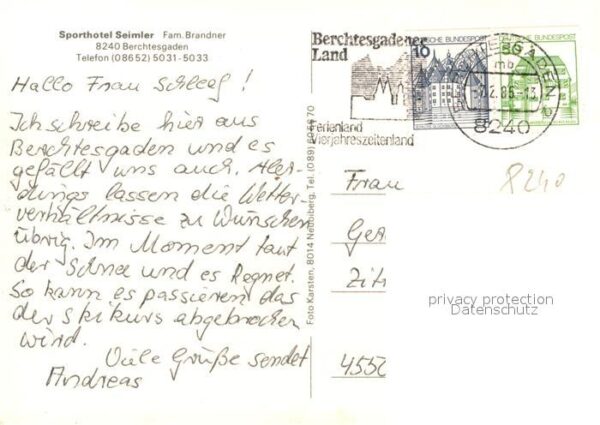 Sporthotel Seimler Fam. Brandner
8240 Berchtesgaden
Telefon (08652) 5031-5033
Hallo Frau Schleef !
Ich schreibe hier aus
Berchtesgaden und es
gefällt uns auch. Aler-
dings lassen die Wetter-
verhältnisse zu Wünschen
übrig. Im Moment taut
der Schnee und es Regnet.
So kann es passieren das
der Skikurs abgebrochen
wird.
Viele Grüße sendet
Andreas
Foto Karsten, 8014 Neubiberg, Tel. (089)
Berchtesgadener
Land
Ferienland
Vierjahreszeitenland
10
DEUTSCHE BUNDESPOST
50
DEUTSCHE BUNDESPOST
mb
8240
8240
Frau
Ger
Zit
4552
privacy protection
Datenschutz